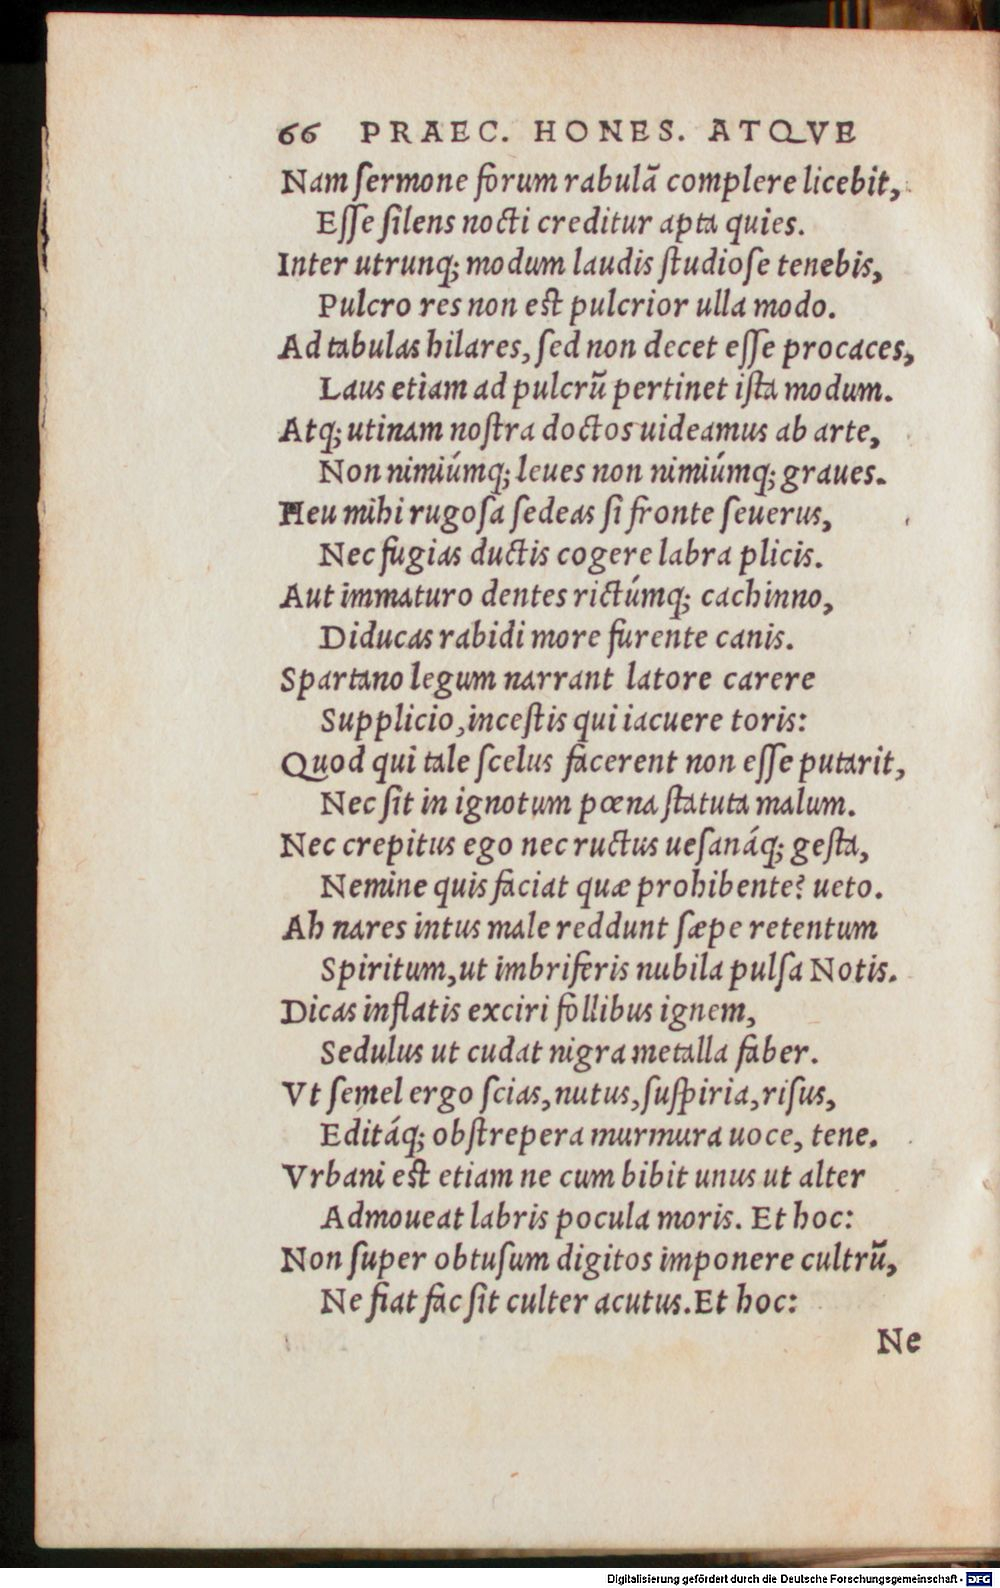 66 PRAEC. HONES. ATQVE
Nam ſermone forum rabulã complere licebit,
Eſſe ſilens nocti creditur apta quies.
Inter utrunq; modum laudis ſtudioſe tenebis,
Pulcro res non est pulcrior ulla modo.
Ad tabulas hilares, ſed non decet eſſe procaces,
Laus etiam ad pulcrũ pertinet iſta modum.
Atq; utinam noſtra doctos uideamus ab arte,
Non nimiúmq; leues non nimiúmq; graues.
Heu mihi rugoſa ſedeas ſi fronte ſeuerus,
Nec fugias ductis cogere labra plicis.
Aut immaturo dentes rictúmq; cachinno,
Diducas rabidi more furente canis.
Spartano legum narrant latore carere
Supplicio, inceſtis qui iacuere toris:
Quod qui tale ſcelus facerent non eſſe putarit,
Nec ſit in ignotum pœna ſtatuta malum.
Nec crepitus ego nec ructus ueſanáq; geſta,
Nemine quis faciat quæ prohibente? ueto.
Ah nares intus male reddunt ſæpe retentum
Spiritum, ut imbriferis nubila pulſa Notis.
Dicas inflatis exciri follibus ignem,
Sedulus ut cudat nigra metalla faber.
Vt ſemel ergo ſcias, nutus, ſuſpiria, riſus,
Editáq; obſtrepera murmura uoce, tene.
Vrbani est etiam ne cum bibit unus ut alter
Admoueat labris pocula moris. Et hoc:
Non ſuper obtuſum digitos imponere cultrũ,
Ne fiat fac ſit culter acutus. Et hoc:
Ne
Digitalisierung gefördert durch die Deutsche Forschungsgemeinschaft - DFG